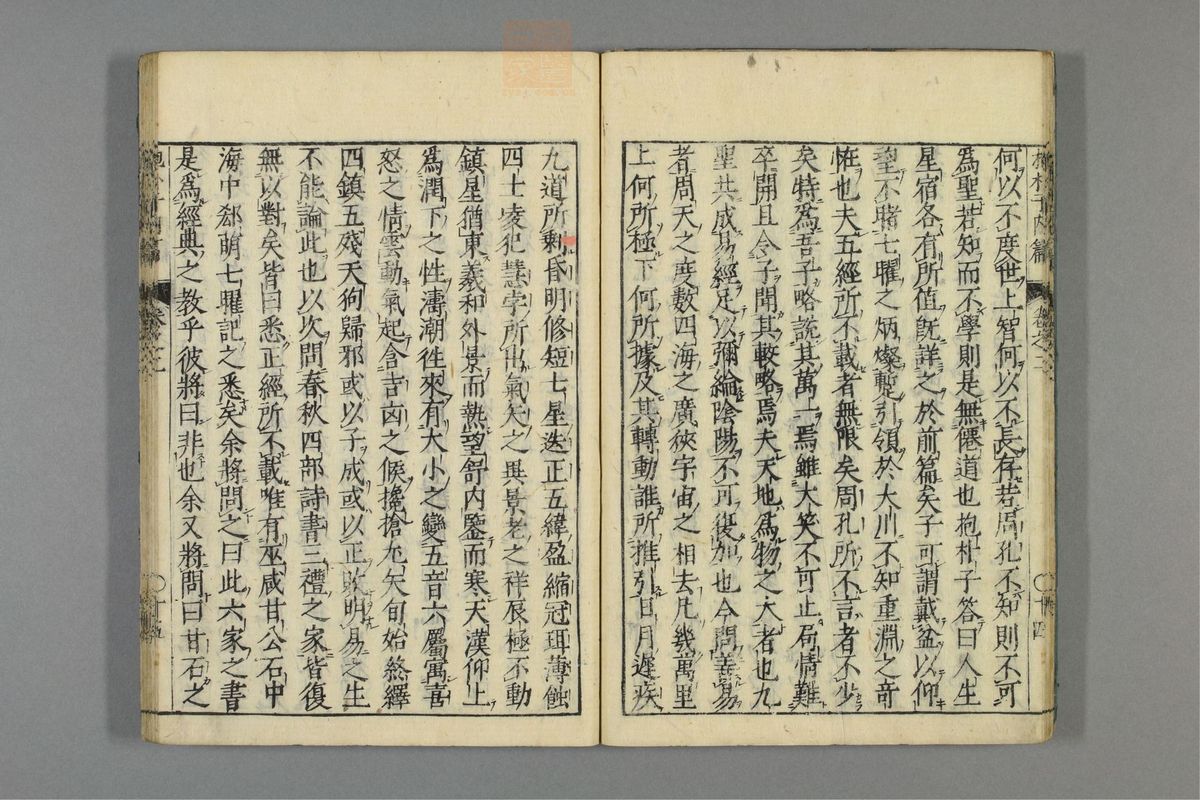 何以不度世上智何以不長存若周孔不知則不可
為聖若知而不學則是無僊道也抱朴子答曰人生
星宿各有所值既詳之於前篇矣子可謂戴盆以仰
望不睹七曜之炳燦蹔引領於大川不知重淵之奇
恠也夫五經所不載者無限矣周孔所不言者不少
矣特為吾子略說其萬一焉雖大笑不可止局情難
卒開且令子聞其較略焉夫天地為物之大者也九
聖共成易經足以彌綸陰陽不可復加也今問善易
者周天之度數四海之廣狹宇宙之相去凡幾萬里
上何所極下何所據及其轉動誰所推引日月遲疾
九道所剩昏明修短七星迭正五緯盈縮冠珥薄蝕
四七凌犯彗孛所出氣矢之異景老之祥辰極不動
鎮星獨東羲和外景而熱望舒內鑒而寒天漢仰上
為潤下之性濤潮徃來有大小之變五音六屬寓喜
怒之情雲動氣起含吉凶之候攙搶尤矢旬始絳繹
四鎮五殘天狗歸邪或以子成或以正敗明易之生
不能論此也以次問春秋四部詩書三禮之家皆復
無以對矣皆曰悉正經所不載唯有巫咸甘公石中
海中郄萌七曜記之悉矣余將問之曰此六家之書
是為經典之教乎彼將曰非也余又將問曰甘石之